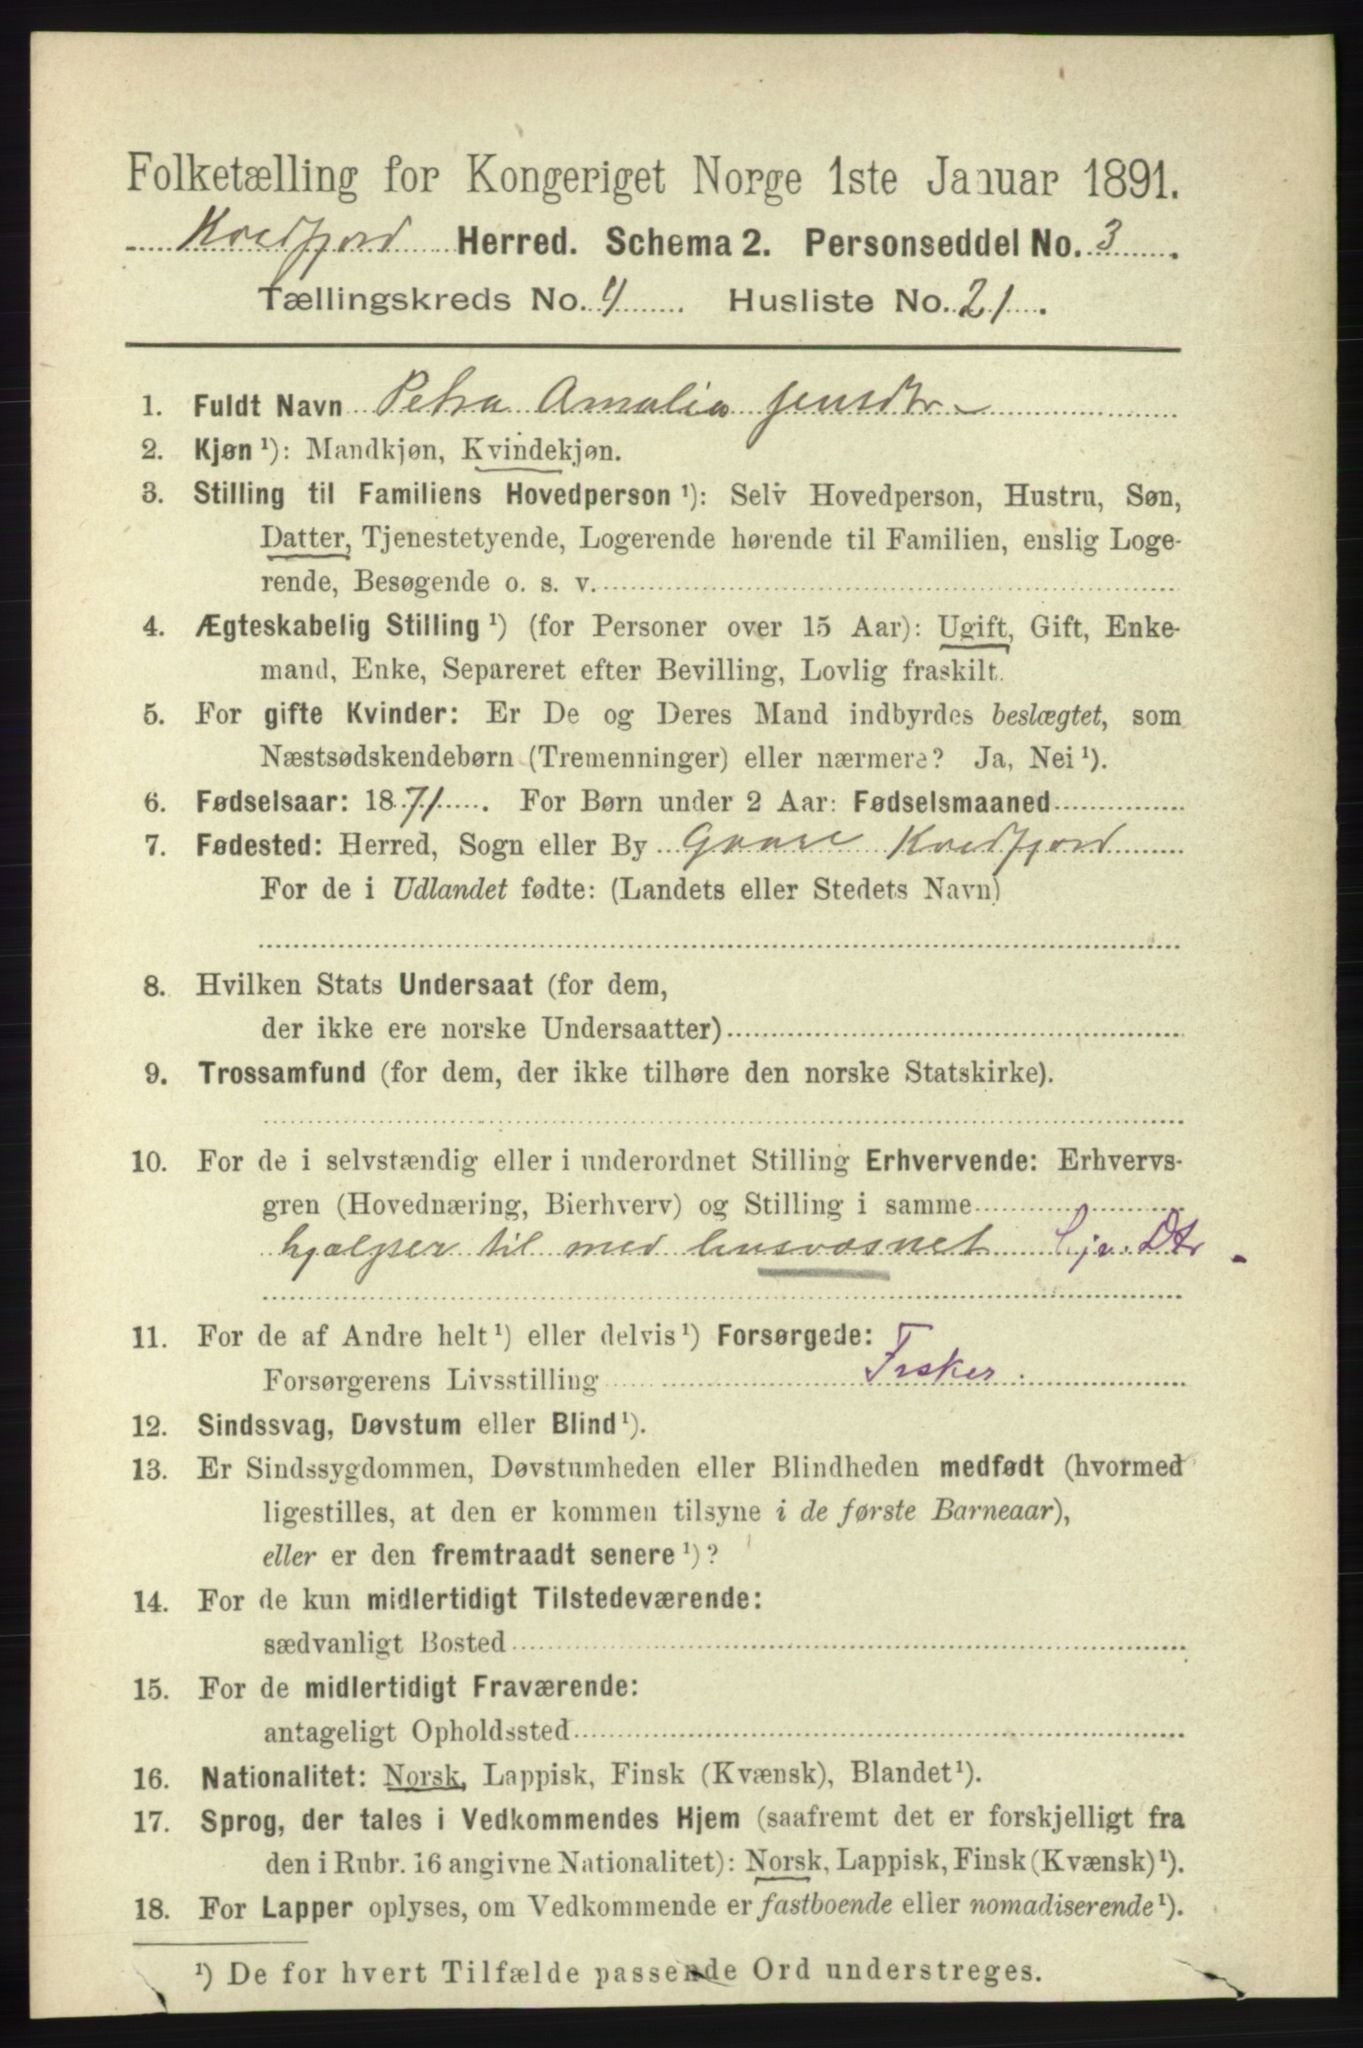 Folketælling for Kongeriget Norge 1ste Januar 1891.
Kvedfjord Herred. Schema 2. Personseddel No. 3.
Tællingskreds No. 4 Husliste No. 21.
1. Fuldt Navn Petra Amalia Jensdtr
2. Kjøn ¹): Mandkjøn, Kvindekjøn.
3. Stilling til Familiens Hovedperson ¹): Selv Hovedperson, Hustru, Søn,
Datter, Tjenestetyende, Logerende hørende til Familien, enslig Loge-
rende, Besøgende o. s. v.
4. Ægteskabelig Stilling ¹) (for Personer over 15 Aar): Ugift, Gift, Enke-
mand, Enke, Separeret efter Bevilling, Lovlig fraskilt.
5. For gifte Kvinder: Er De og Deres Mand indbyrdes beslægtet, som
Næstsødskendebørn (Tremenninger) eller nærmere? Ja, Nei ¹).
6. Fødselsaar: 1871. For Børn under 2 Aar: Fødselsmaaned
7. Fødested: Herred, Sogn eller By Gaare Kvedfjord
For de i Udlandet fødte: (Landets eller Stedets Navn)
8. Hvilken Stats Undersaat (for dem,
der ikke ere norske Undersaatter)
9. Trossamfund (for dem, der ikke tilhøre den norske Statskirke).
10. For de i selvstændig eller i underordnet Stilling Erhvervende: Erhvervs-
gren (Hovednæring, Bierhverv) og Stilling i samme
hjælper til med husvæsnet Hjv. Dtr
11. For de af Andre helt ¹) eller delvis ¹) Forsørgede:
Forsørgerens Livsstilling Fisker
12. Sindssvag, Døvstum eller Blind ¹).
13. Er Sindssygdommen, Døvstumheden eller Blindheden medfødt (hvormed
ligestilles, at den er kommen tilsyne i de første Barneaar),
eller er den fremtraadt senere ¹)?
14. For de kun midlertidigt Tilstedeværende:
sædvanligt Bosted
15. For de midlertidigt Fraværende:
antageligt Opholdssted
16. Nationalitet: Norsk, Lappisk, Finsk (Kvænsk), Blandet ¹).
17. Sprog, der tales i Vedkommendes Hjem (saafremt det er forskjelligt fra
den i Rubr. 16 angivne Nationalitet): Norsk, Lappisk, Finsk (Kvænsk) ¹).
18. For Lapper oplyses, om Vedkommende er fastboende eller nomadiserende ¹).
¹) De for hvert Tilfælde passende Ord understreges.